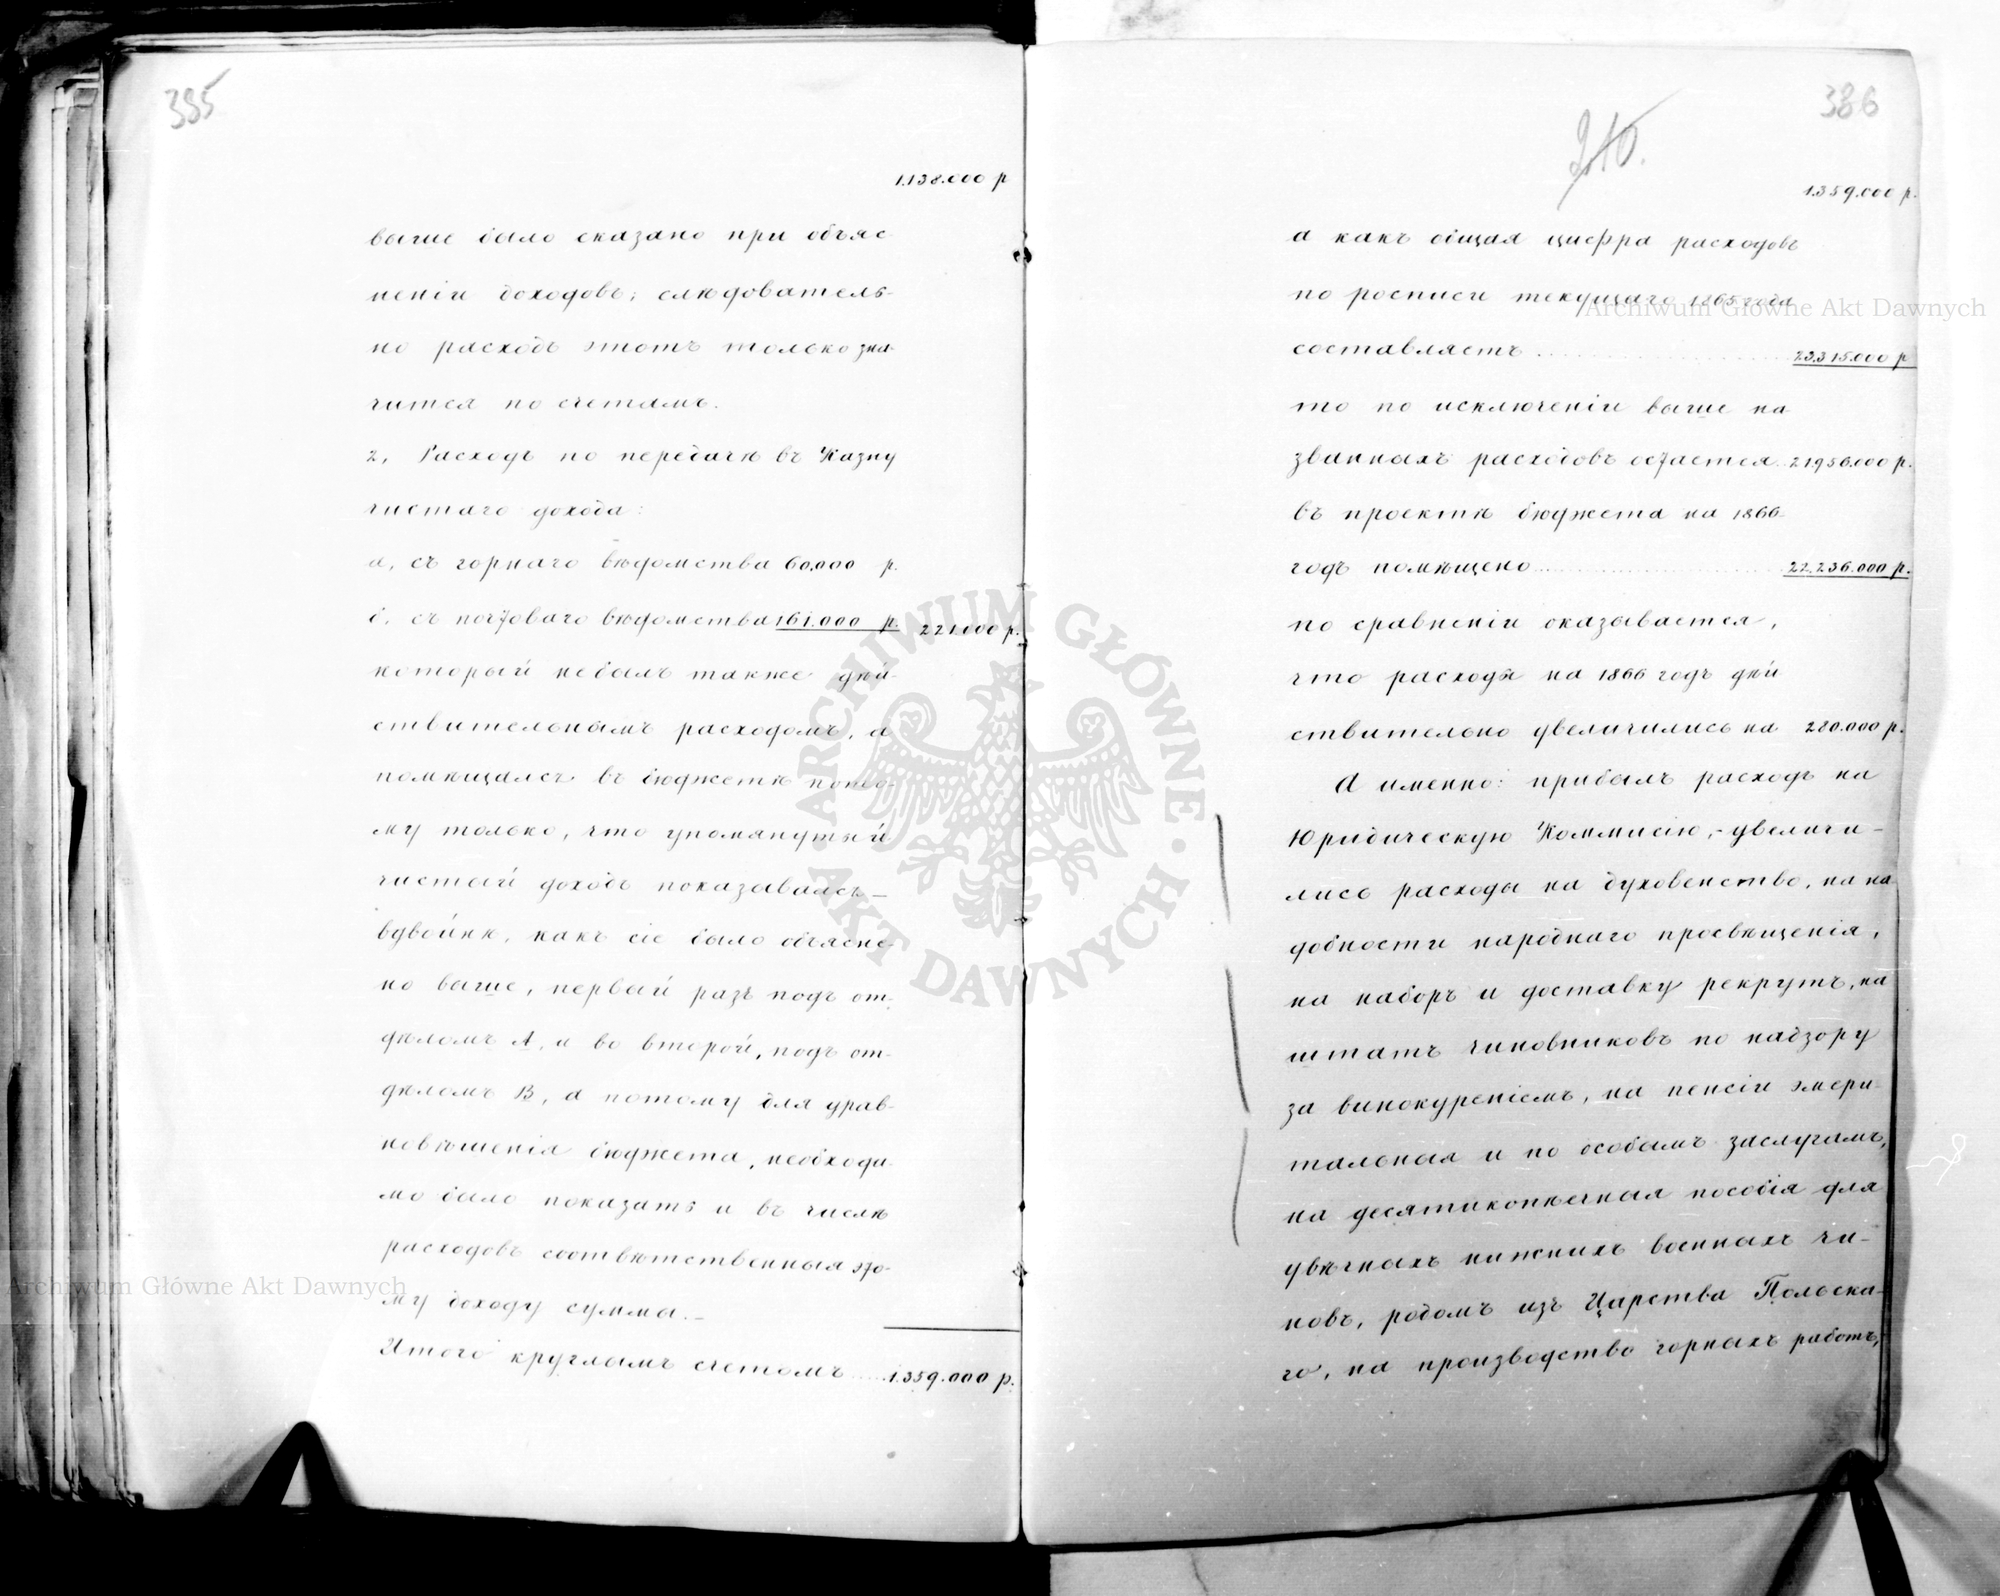 385
1.138.000 р
выше было сказано при объяс-
неніи доходовъ; слѣдователь-
но расходъ этотъ только зна-
чится по счетамъ.
2, Расходъ по передачѣ въ Казну
чистаго дохода:
а, съ горнаго вѣдомства 60.000 р.
б, съ почтоваго вѣдомства 161.000 р. 221.000 р.
который небылъ также дѣй-
ствительнымъ расходомъ, а
помѣщался въ бюджетѣ пото-
му только, что упомянутый
чистый доходъ показывался
вдвойнѣ, какъ сіе было объясне-
но выше, первый разъ подъ от-
дѣломъ А, и во второй, подъ от-
дѣломъ В, а потому для урав-
новѣшенія бюджета, необходи-
мо было показать и въ числѣ
расходовъ соотвѣтственныя это-
му доходу суммы.-
Итого круглымъ счетомъ .... 1.359.000 р.
386
210.
1.359.000 р.
а какъ общая цифра расходовъ
по росписи текущаго 1865 года
составляетъ ........ 23.315.000 р
то по исключеніи выше на
званныхъ расходовъ остается .. 21.956.000 р.
въ проектѣ бюджета на 1866
годъ помѣщено ........ 22.236.000 р.
по сравненіи оказывается,
что расходы на 1866 годъ дѣй
ствительно увеличились на 280.000 р.
А именно: прибылъ расходъ на
Юридическую Коммисію,- увеличи-
лись расходы на духовенство, на на
добности народнаго просвѣщенія,
на наборъ и доставку рекрутъ, на
штатъ чиновниковъ по надзору
за винокуреніемъ, на пенсіи эмери-
тальныя и по особымъ заслугамъ,
на десятикопѣечныя пособія для
увѣчныхъ нижнихъ военныхъ чи-
новъ, родомъ изъ Царства Польска-
го, на производство горныхъ работъ,
Archiwum Główne Akt Dawnych
Archiwum Główne Akt Dawnych
ARCHIWUM GŁÓWNE AKT DAWNYCH